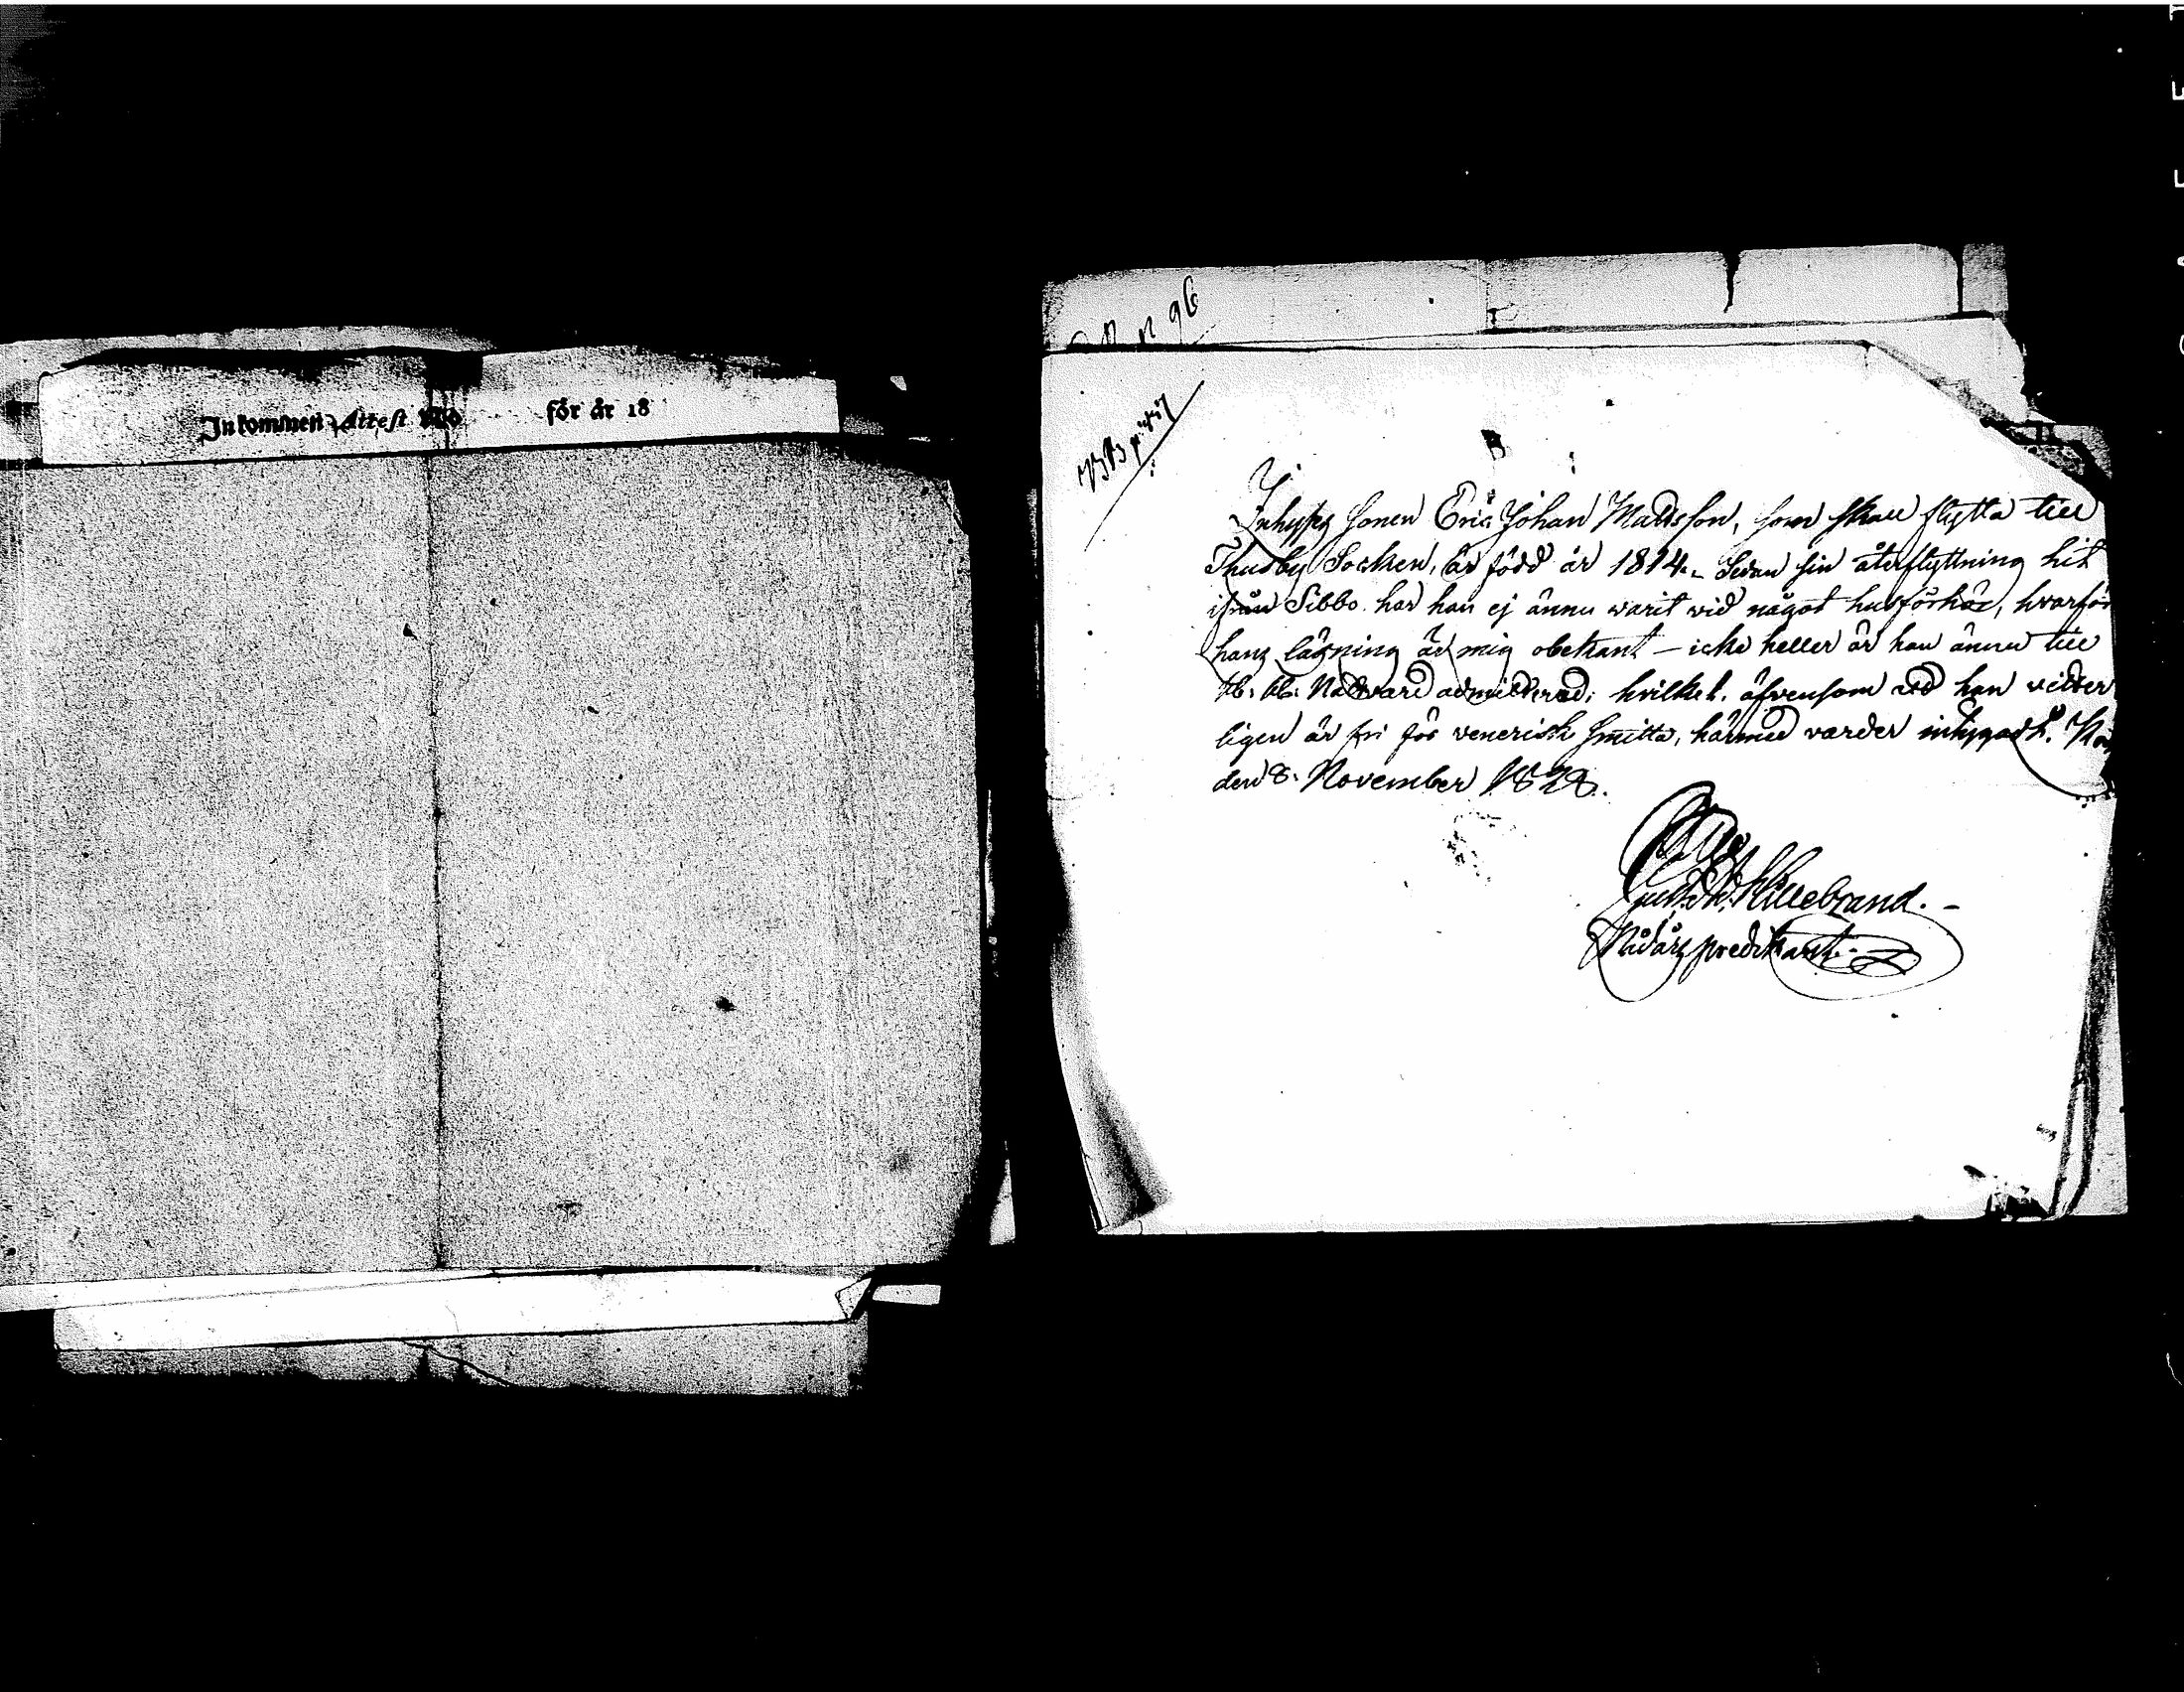 Inkommen Attest No för år 18
96
Inhyses sonen Eric Johan Mattsson, som skall flytta till
Thusby Socken, är född år 1814. Sedan sin återflyttning hit
ifrån Sibbo har han ej ännu warit wid något husförhör, hvarför
hans läsning är mig obekant – icke heller är han ännu till
H. H. Nattvard admitterad; hvilket, äfvensom att han vitter
ligen är fri för venerisk smitta, härmed varder intygadt.
den 8. November 1828.
Hillebrand. –
Nådårs predikant.